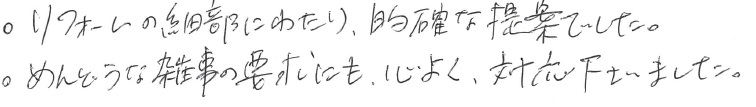 。リフォームの細部にわたり、的確な提案でした。
。めんどうな雑事の要求にも、心よく、対応下さいました。